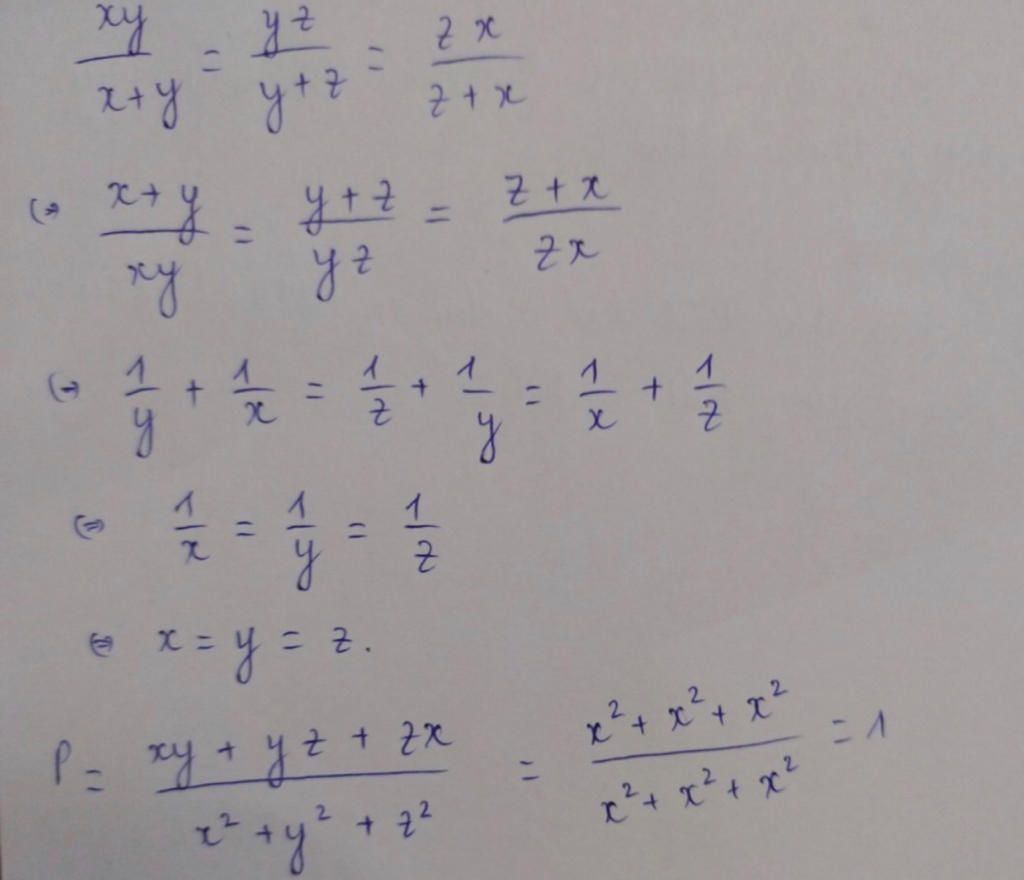 xy/(x+y) = yz/(y+z) = zx/(z+x)
(→ (x+y)/(xy) = (y+z)/(yz) = (z+x)/(zx)
(→ 1/y + 1/x = 1/z + 1/y = 1/x + 1/z
⇔ 1/x = 1/y = 1/z
⇔ x = y = z.
P = (xy + yz + zx)/(x² + y² + z²) = (x² + x² + x²)/(x² + x² + x²) = 1